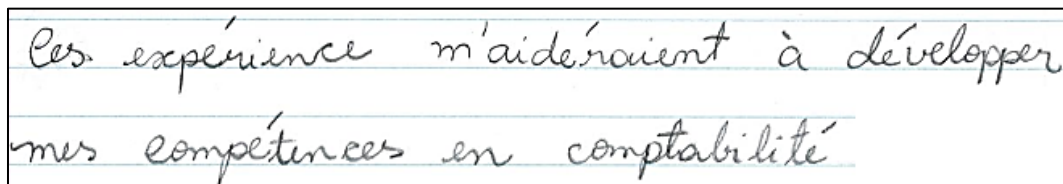 Ces expérience m'aidéraient à développer
mes compétences en comptabilité